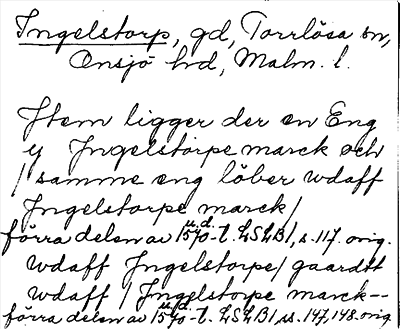 Ingelstorp, gd, Torrlösa sn,
Onsjö hd, Malm. l.
Item ligger der en Eng
y Jngelstorpe marck och
/ samme eng löber wdaff
Jngelstorpe marck/
förra delen av 1570-t. LSLB1, s. 117. orig.
wdaff Jngelstorpe/ gaardtt
wdaff / Jngglstorpe marck--
förra delen av 1570-t. LSLB1, ss. 147, 148. orig